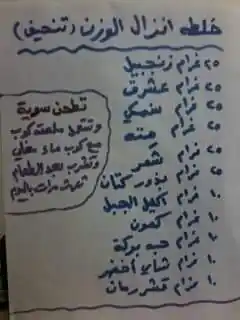 خلطه انزال الوزن (تنحيف)
٢٥ غرام زنجبيل
٢٥ غرام عشرق
٢٥ غرام سنمكي
٢٥ غرام ميته
٢٥ غرام شمر
٢٥ غرام بذور كتان
١٠ غرام اكليل الجبل
١٠ غرام كمون
١٠ غرام حبه بركة
١٠ غرام شاي أخضر
١٠ غرام قشر رمان
تطحن سوية
وتغلى ملعقة كوب
مع كوب ماء مغلي
وتشرب بعد الطعام
ثلاث مرات باليوم